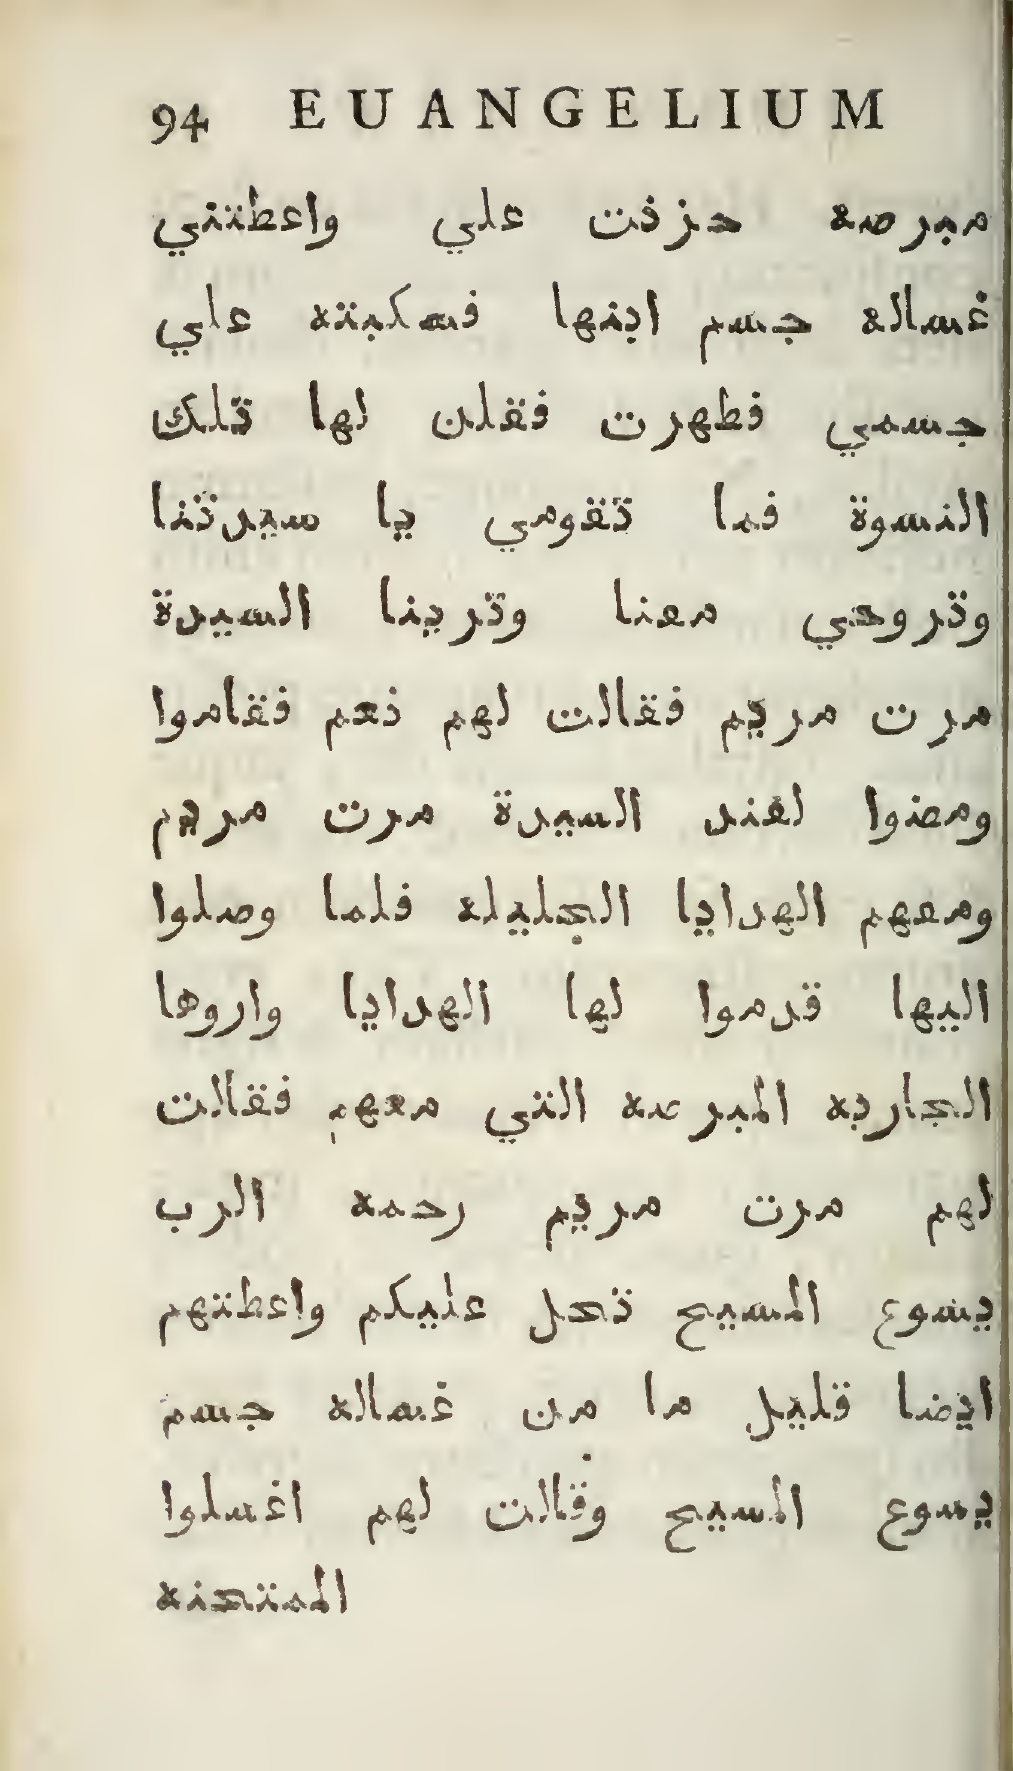 94 EUANGELIUM
مبرصه حزنت علي واعطتني
غساله جسم ابنها فسكبته علي
جسمي فطهرت فقلن لها تلك
النسوة فما تقومي يا سيدتنا
وتروحي معنا وترينا السيدة
مرت مريم فقالت لهم نعم فقاموا
ومضوا لعند السيدة مرت مريم
ومعهم الهدايا الجليله فلما وصلوا
اليها قدموا لها الهدايا واروها
الجاريه المبرصه التي معهم فقالت
لهم مرت مريم رحمه الرب
يسوع المسيح تحل عليكم واعطتهم
ايضا قليل ما من غساله جسم
يسوع المسيح وقالت لهم اغسلوا
الممتحنه